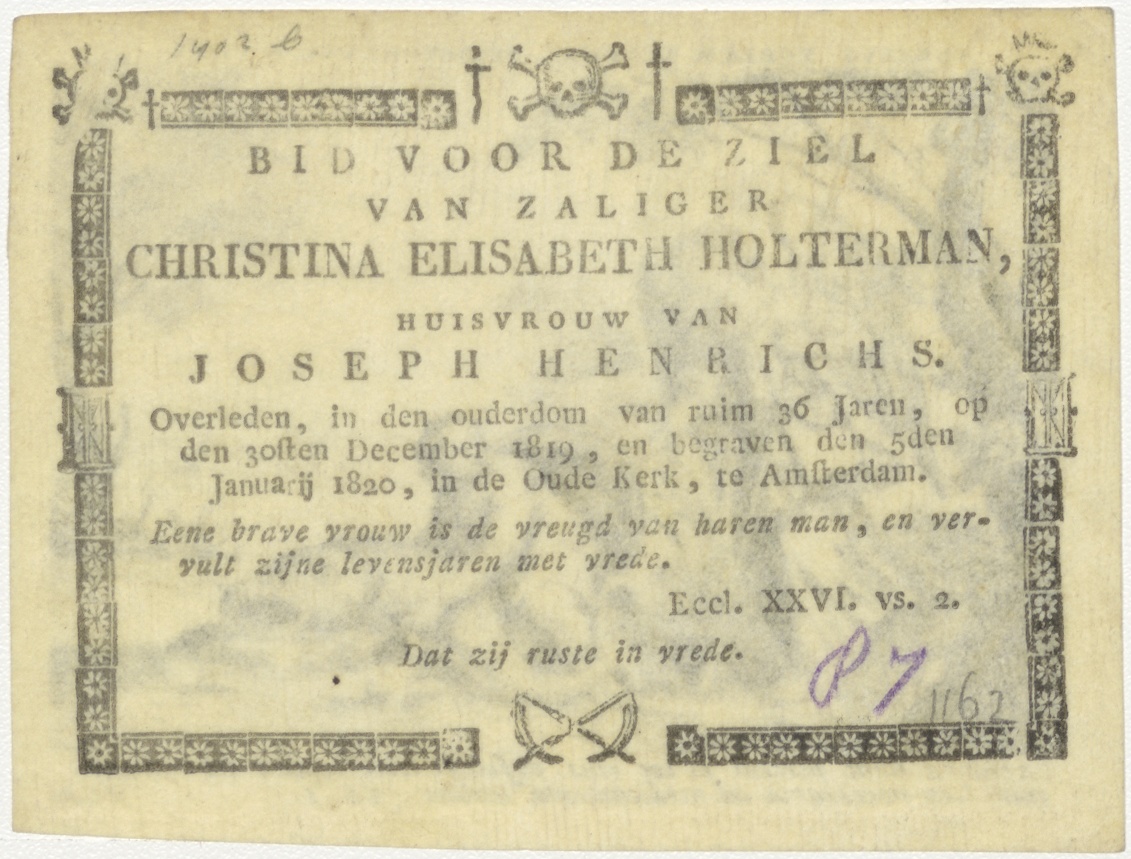 1402. b.
BID VOOR DE ZIEL
VAN ZALIGER
CHRISTINA ELISABETH HOLTERMAN,
HUISVROUW VAN
JOSEPH HENRICHS.
Overleden, in den ouderdom van ruim 36 Jaren, op
den 30ſten December 1819, en begraven den 5den
Januarij 1820, in de Oude Kerk, te Amſterdam.
Eene brave vrouw is de vreugd van haren man, en ver-
vult zijne levensjaren met vrede.
Eccl. XXVI. vs. 2.
Dat zij ruste in vrede.
P 7
1162